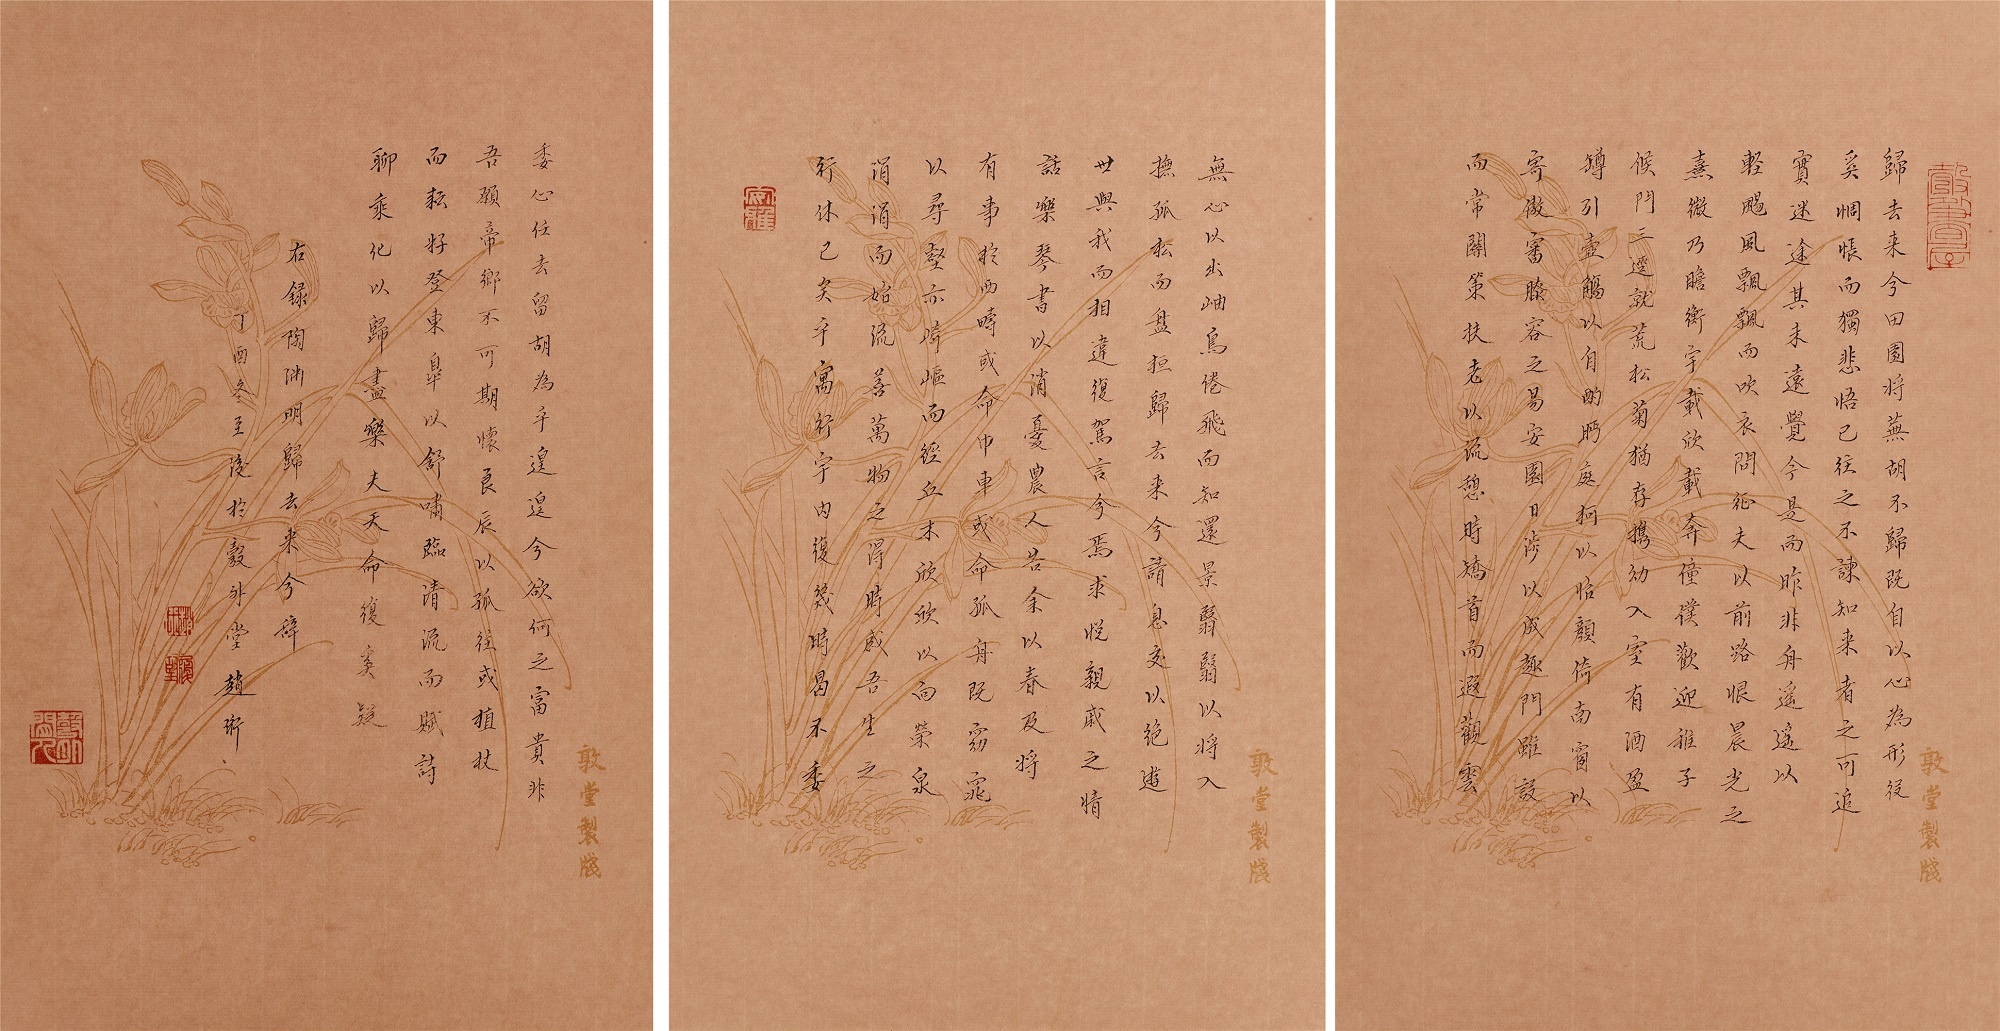 歸去来兮田園将蕪胡不歸既自以心為形役
奚惆悵而獨悲悟已往之不諫知来者之可追
實迷途其未遠覺今是而昨非舟遥遥以
軽颺風飄飄而吹衣問征夫以前路恨晨光之
熹微乃瞻衡宇載欣載奔僮僕歡迎稚子
候門三逕就荒松菊猶存攜幼入室有酒盈
罇引壺觴以自酌眄庭柯以怡顔倚南窗以
寄傲審膝容之易安園日涉以成趣門雖設
而常關策扶老以流憩時矯首而遐觀雲
敦堂製牋
無心以出岫鳥倦飛而知還景翳翳以将入
撫孤松而盘桓歸去来兮請息交以絶遊
世與我而相違復駕言兮焉求悦親戚之情
話樂琴書以消憂農人告余以春及将
有事於西疇或命巾車或命孤舟既窈窕
以尋壑亦崎嶇而經丘木欣欣以向榮泉
涓涓而始流善萬物之得時感吾生之
行休已矣乎寓行宇内復幾時曷不委
敦堂製牋
委心任去留胡為乎遑遑兮欲何之富貴非
吾願帝鄉不可期懷良辰以孤往或植杖
而耘好登東皐以舒嘯臨清流而賦詩
聊乘化以歸盡樂夫天命復奚疑
右録陶渊明歸去来兮辞
丁酉冬至後於彀外堂趙珩
敦堂製牋